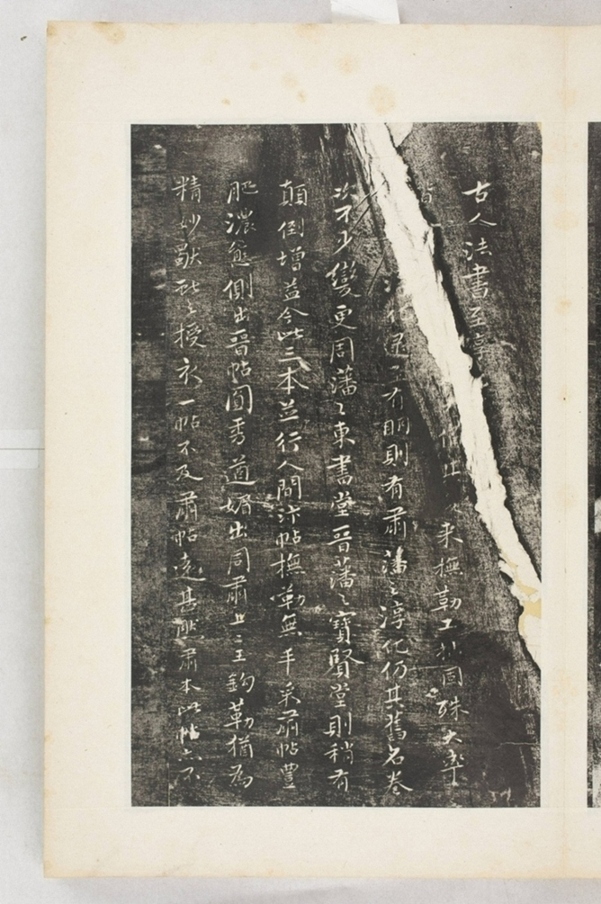 古人法書至淳
止 來橅勒工拙固殊大率
皆 淳化逓之有明則有肅藩之淳化仍其舊名卷
次不少變更周藩之東書堂晉藩之寶賢堂則稍有
顛倒增益今此三本並行人間汴帖橅勒無手采肅帖豐
肥濃愈側出晉帖圓秀遒媚出同肅上二王鉤勒猶為
精妙歇此授衣一帖不及肅帖遠甚然肅本此帖亦不